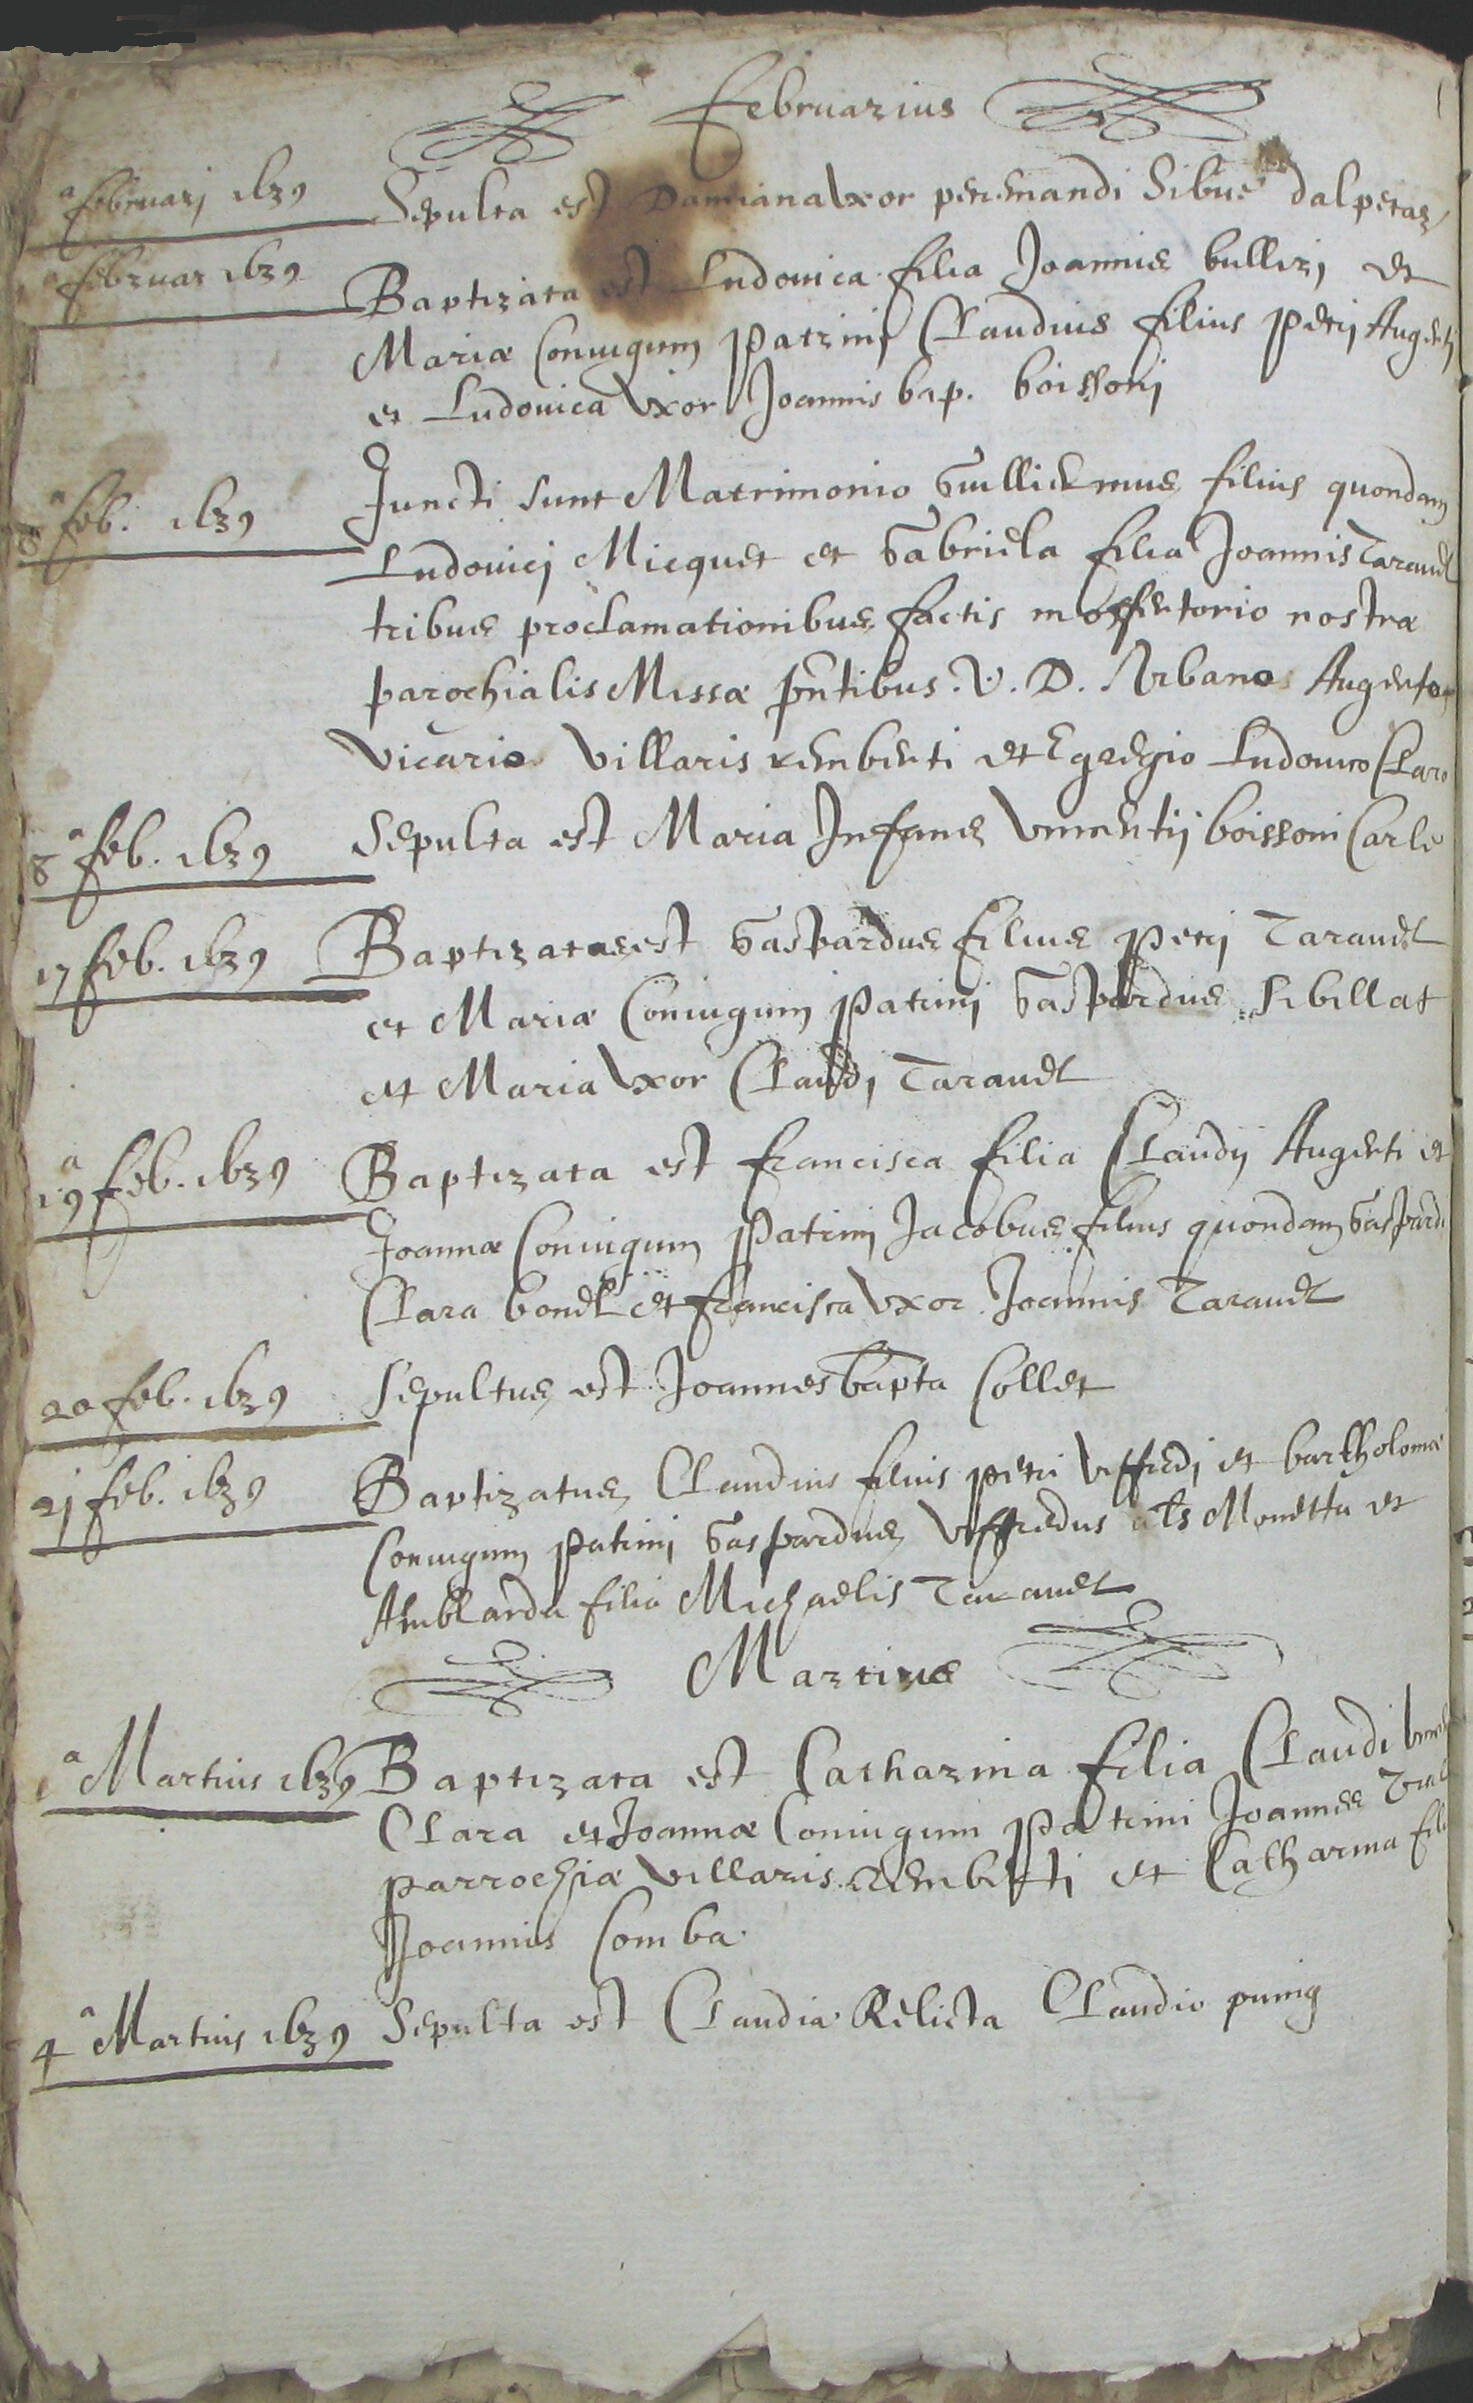 Februarius
a februarj 1639 Sepulta est Damiana Uxor petremandi Sibué dalpetaz
a februar 1639 Baptizata est Ludouica filia Joannis bullirj et
Mariæ Coniugum Patrinj Claudius filius Petrj Augertj
et Ludouica Uxor Joannis bap. boissonj
8 a feb. 1639 Juncti sunt Matrimonio Guillielmus filius quondam
Ludouicj Micquet et Gabriela filia Joannis Taraudet
tribus proclamationibus factis in offertorio nostræ
parochialis Missæ pñtibus. V. D. Urbano Augerto
Vicario Villaris remberti et Egregio Ludouico Claro
8 a feb. 1639 Sepulta est Maria Infans Vincentij boissoni Carle
17 feb. 1639 Baptizatus est Gaspardus filius Petrj Taraudet
et Mariæ Coniugum Patrinj Gaspardus Sibillat
et Maria Uxor Claudj Taraudet
19 a feb. 1639 Baptizata est francisca filia Claudij Augerti et
Joannæ Coniugum Patrinj Jacobus filius quondam Gaspardi
Clara bondet et francisca Uxor Joannis Taraudet
20 feb. 1639 Sepultus est Joannes bapta Collet
21 feb. 1639 Baptizatus Claudius filius petri Uffredj et bartholomæ
Coniugum patrinj Gaspardus Uffredus als Monetta et
Amblarda filia Michaelis Taraudet
Martius
1 a Martius 1639 Baptizata est Catharina filia Claudi
Clara et Joannæ Coniugum Patrini Joannes
parrochiæ Villaris remberti et Catharina fili
Joannis Comba.
4 a Martius 1639 Sepulta est Claudia Relicta Claudio punig